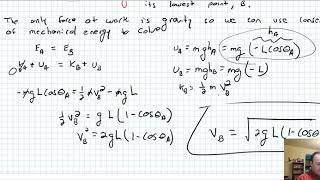 its lowest point, B.
The only force at work is gravity so we can use
of mechanical energy to solve
E_A = E_B
K_A + U_A = K_B + U_B
-mgLcosθ_A = ½mV_B² - mgL
½V_B² = gL(1-cosθ_A)
V_B² = 2gL(1-cosθ_A)
h_B
U_A = mgh_A = mg(-Lcosθ_A)
U_B = mgh_B = mg(-L)
K_B = ½mV_B²
V_B = √2gL(1-cos